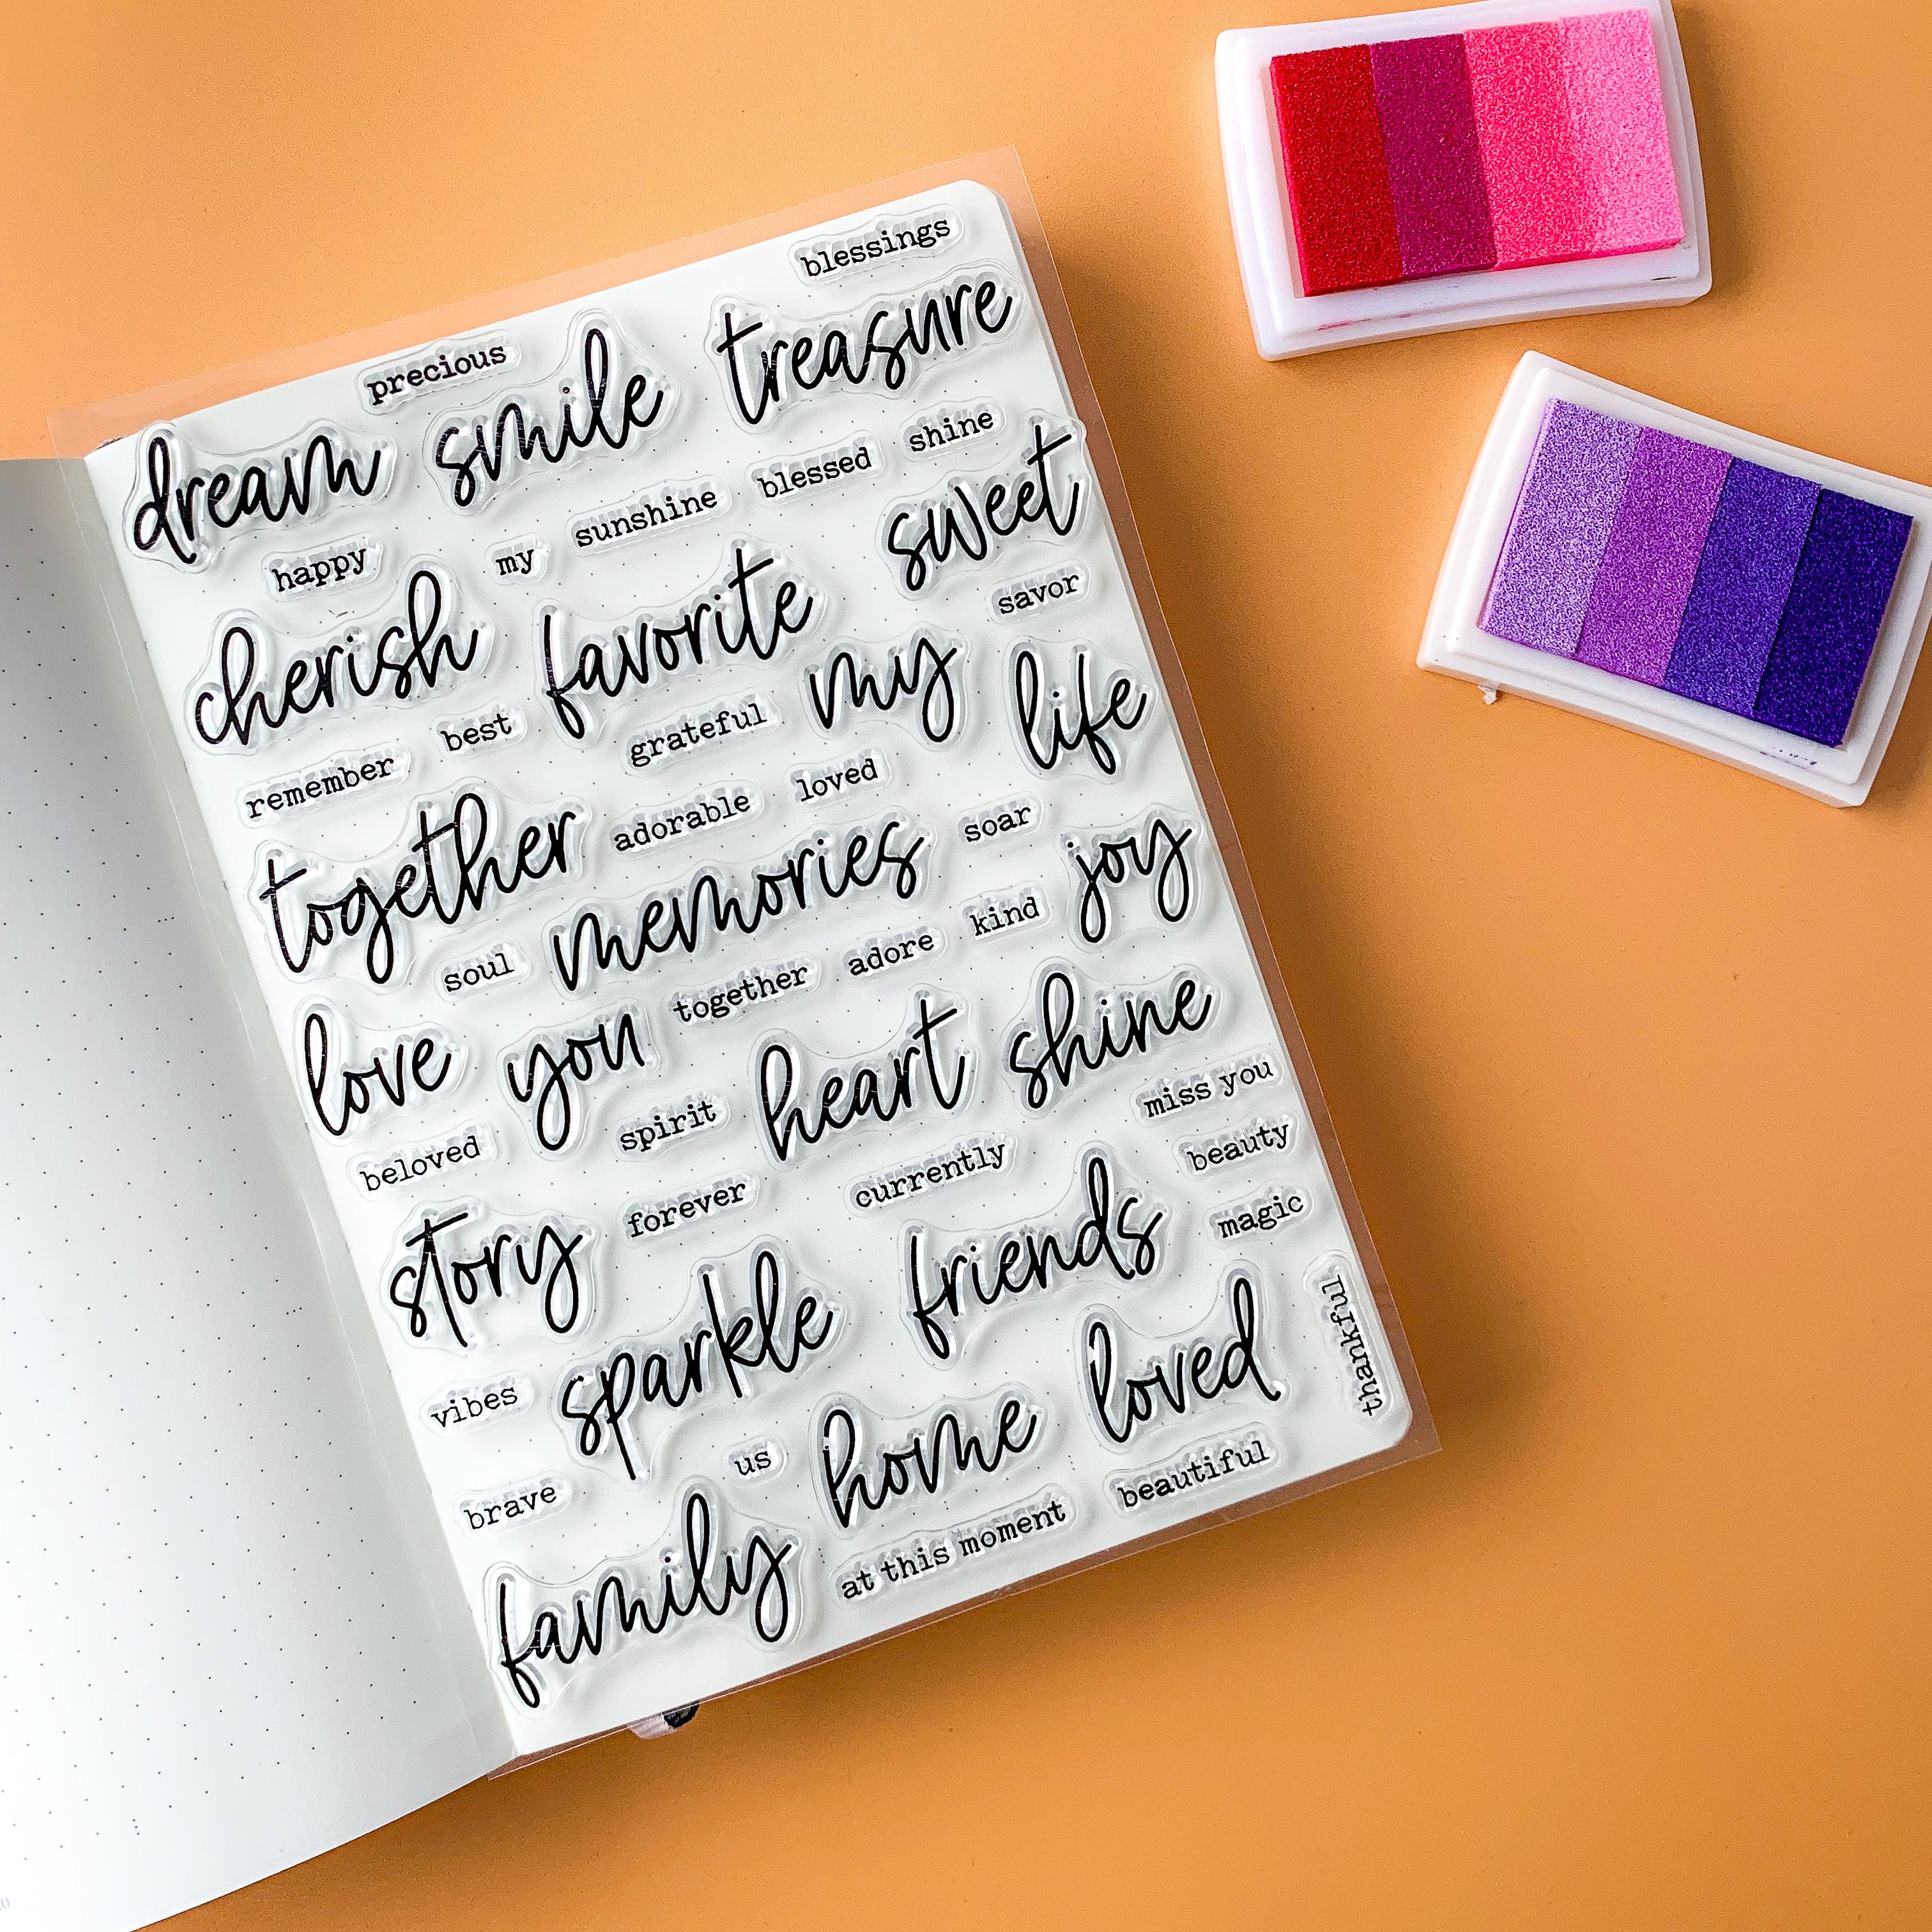 blessings
precious
dream smile treasure
happy my sunshine blessed shine
cherish favorite sweet
savor
remember best grateful my life
together adorable loved
memories soar joy
soul together adore kind
love you heart shine
beloved spirit miss you
story forever currently beauty
friends magic
vibes sparkle loved thankful
brave us home
family at this moment beautiful